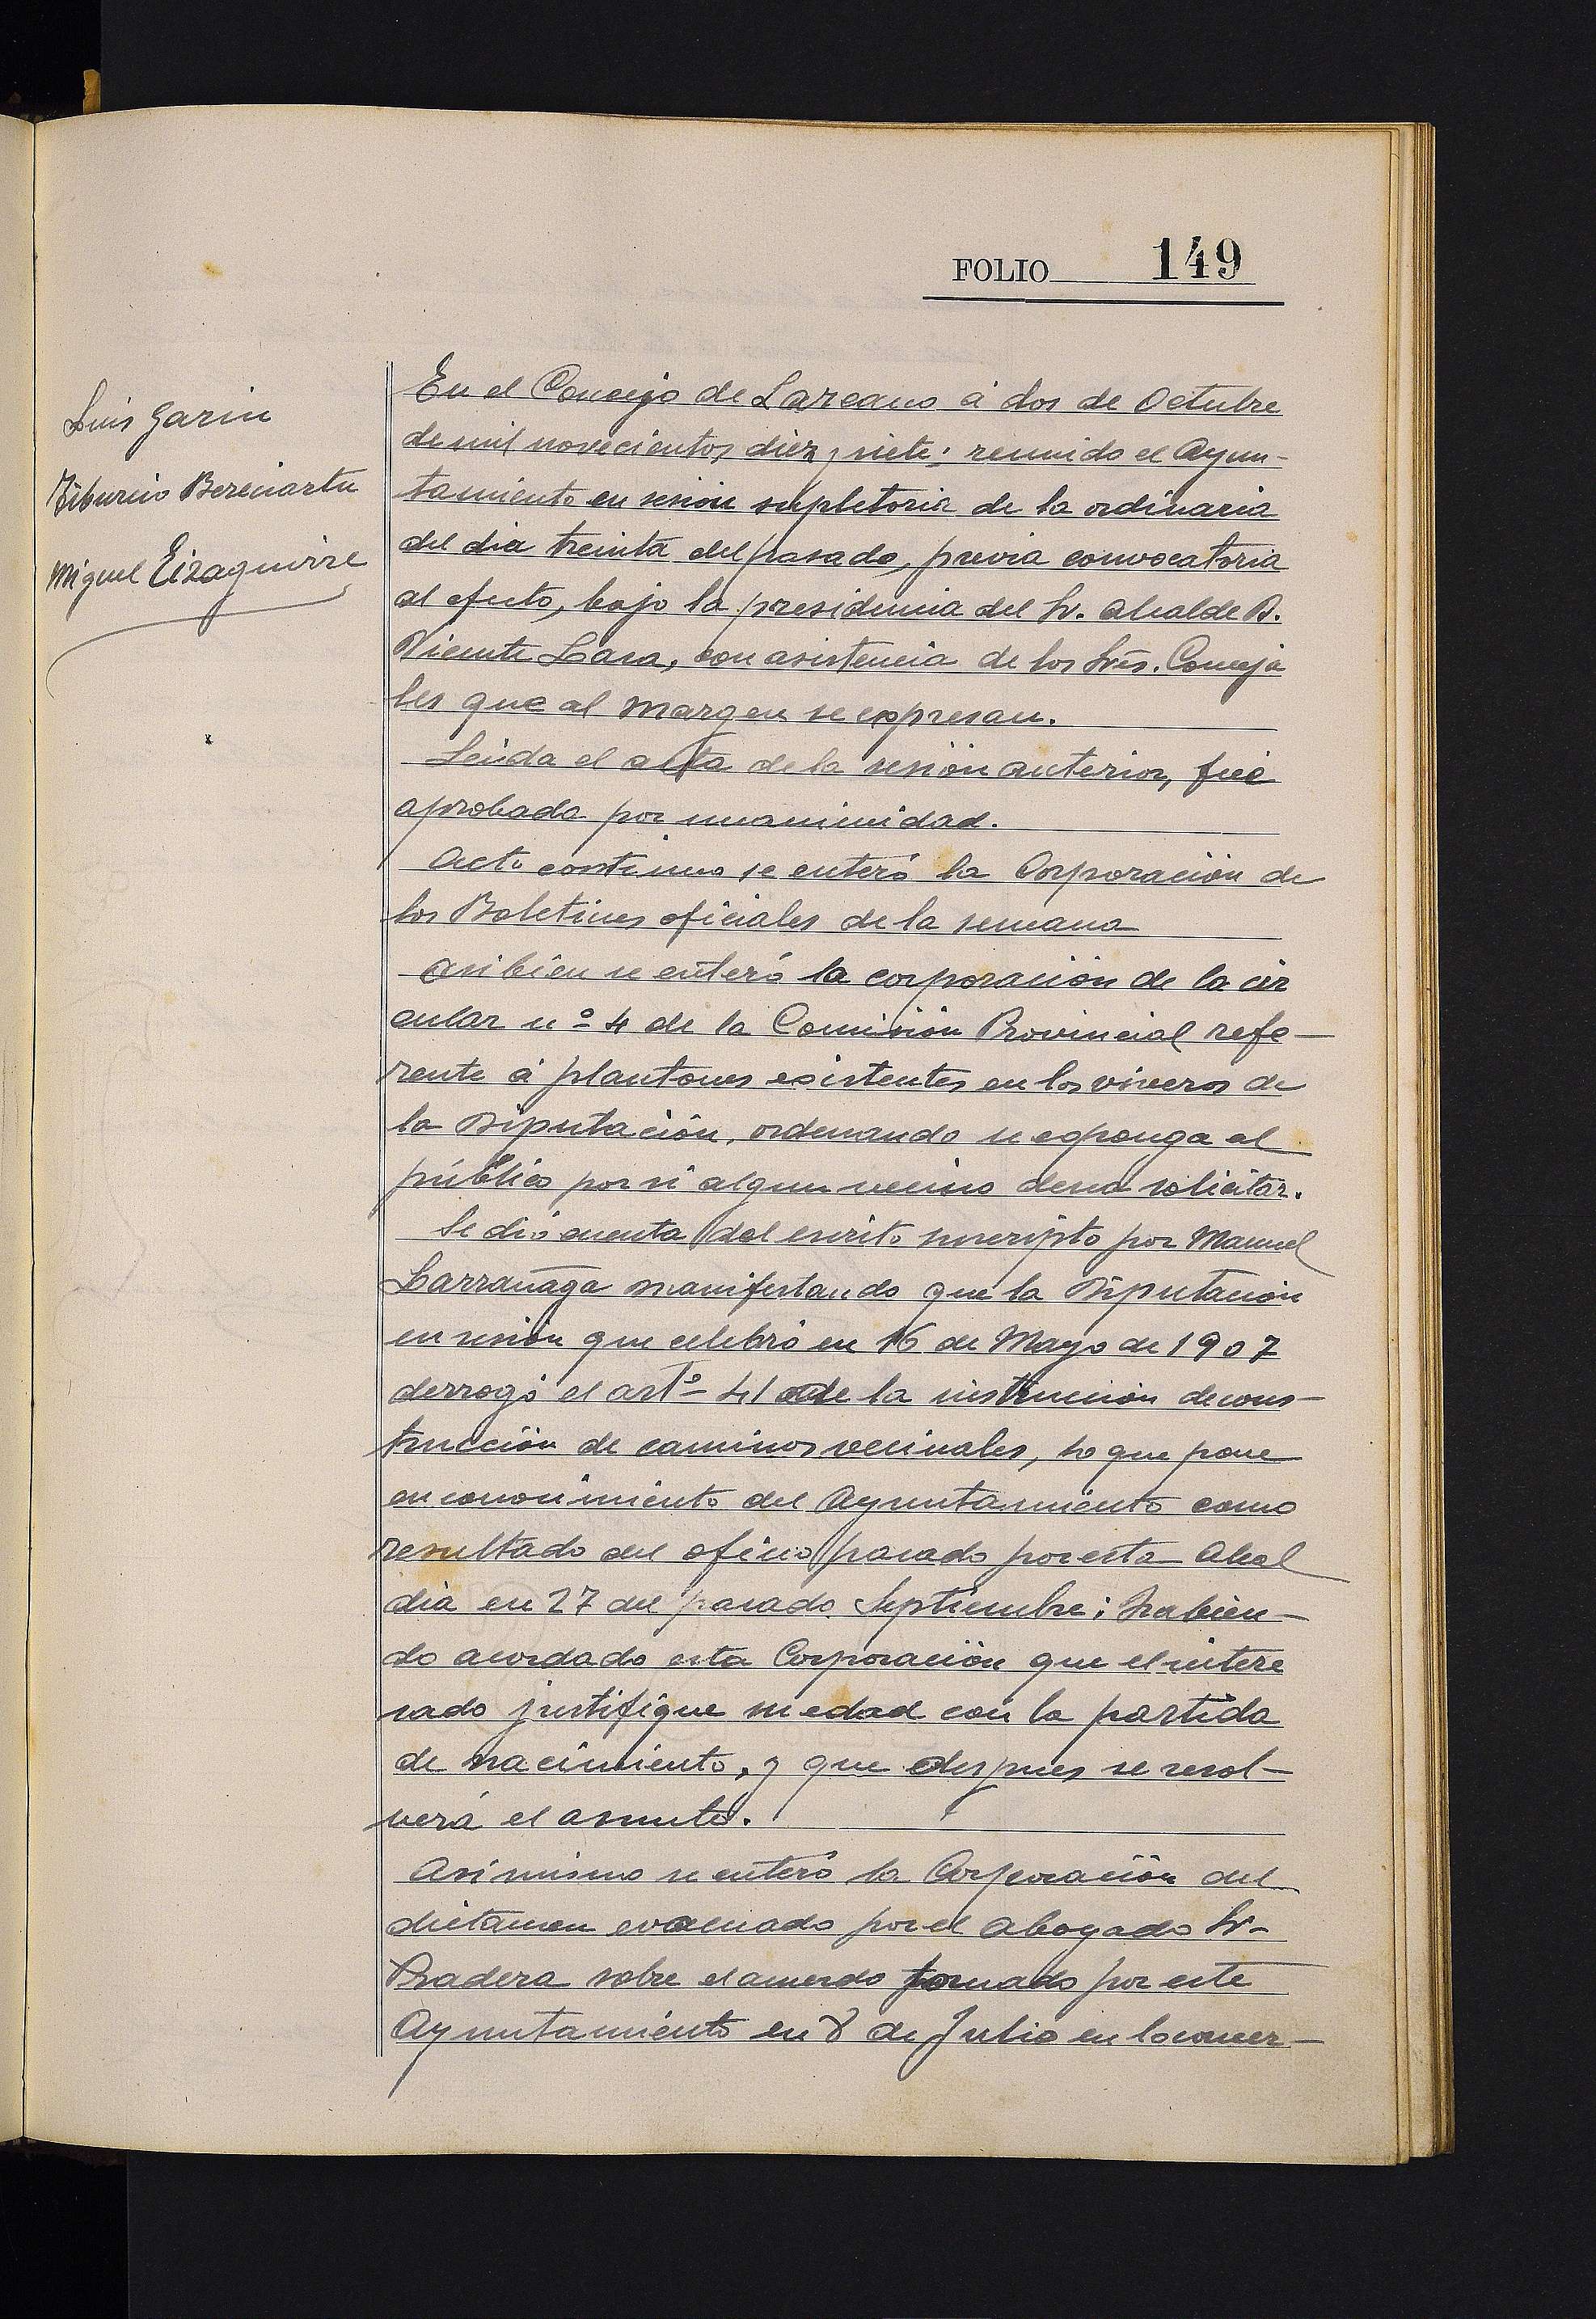 FOLIO 149
Luis Garin
Tiburcio Bereciartu
Miguel Eizaguirre
En el Concejo de Lazcano á dos de Octubre
de mil novecientos diez y siete; reunido el Ayun-
tamiento en sesión supletoria de la ordinaria
del dia treinta del pasado, previa convocatoria
al efecto, bajo la presidencia del Sr. Alcalde D.
Vicente Lasa, con asistencia de los Srés. Conceja
les que al margen se expresan.
Leida el acta de la sesión anterior, fué
aprobada por unanimidad.
Acto continuo se enteró la Corporación de
los Boletines oficiales de la semana
Asi bien se enteró la corporación de la cir
cular nº 4 de la Comisión Provincial refe-
rente á plantones existentes en los viveros de
la Diputación, ordenando se exponga al
público por si algun vecino desea solicitar.
Se dió cuenta del escrito suscripto por Manuel
Larrañaga manifestando que la Diputación
en sesión que celebró en 16 de Mayo de 1907
derrogó el artº 41 de la instrucción de cons-
trucción de caminos vecinales, lo que pone
en conocimiento del Ayuntamiento como
resultado del oficio pasado por esta Alcal
dia en 27 del pasado Septiembre; habien-
do acordado esta Corporación que el intere
sado justifique su edad con la partida
de nacimiento, y que despues se resol-
verá el asunto.
Asi mismo se enteró la Corporación del
dictamen evacuado por el abogado Sr.
Pradera sobre el acuerdo tomado por este
Ayuntamiento en 8 de Julio en lo concer-